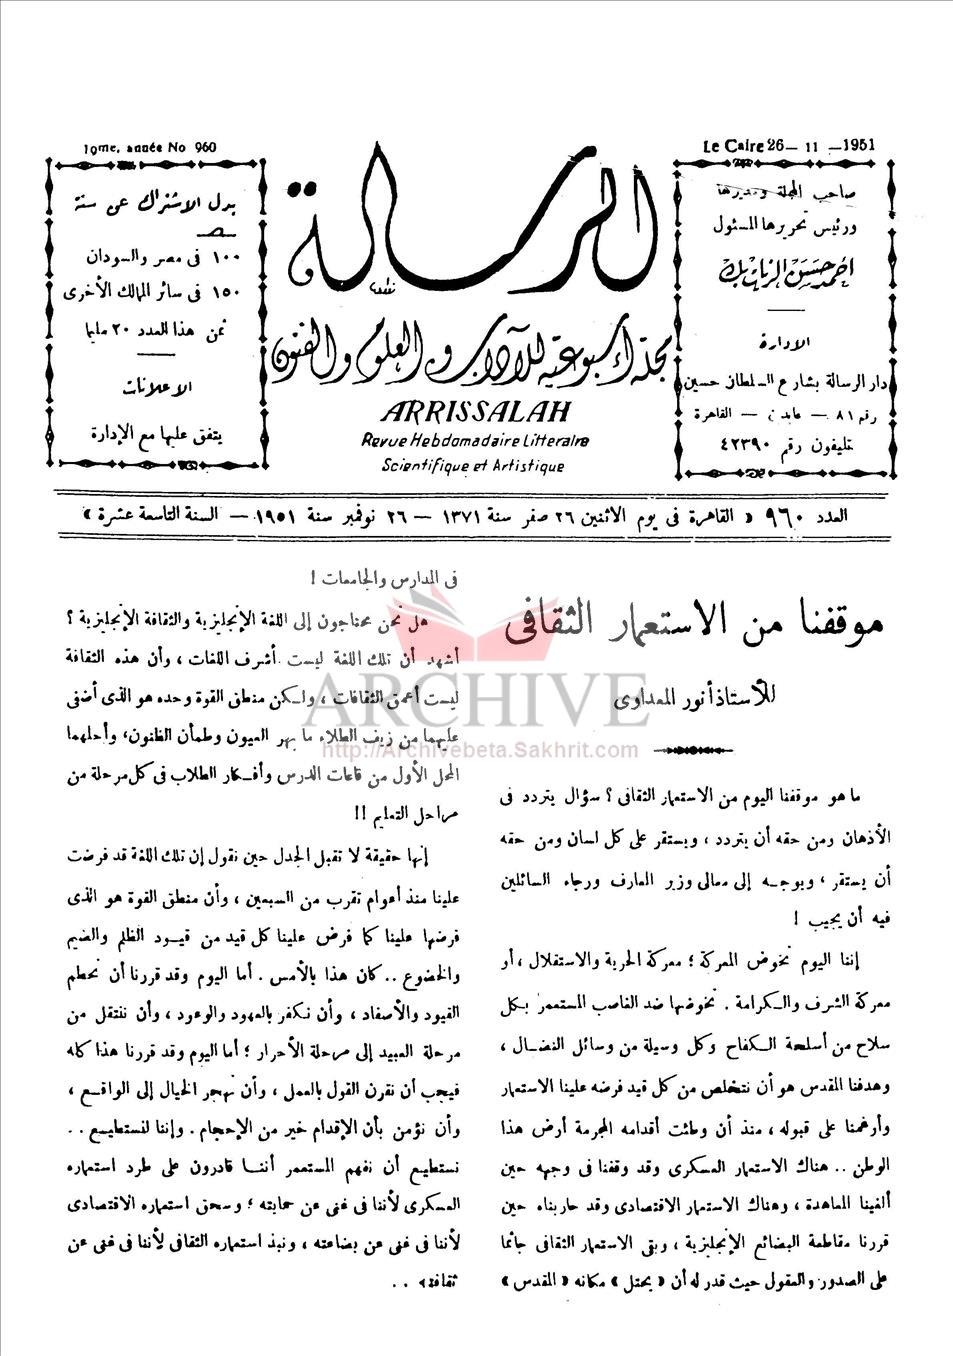 19me, année No 960
Le Caire 26 - 11 - 1951
صاحب المجلة ومديرها
ورئيس تحريرها المسئول
احمد حسن الزيات بك
الادارة
دار الرسالة بشارع السلطان حسين
رقم ٨١ — عابدين — القاهرة
تليفون رقم ٤٢٣٩٠
الرسالة
مجلة أسبوعية للآداب والعلوم والفنون
ARRISSALAH
Revue Hebdomadaire Litteraire
Scientifique et Artistique
بدل الاشتراك عن سنة
١٠٠ فى مصر والسودان
١٥٠ فى سائر الممالك الأخرى
ثمن هذا العدد ٢٠ مليما
الاعلانات
يتفق عليها مع الإدارة
العدد ٩٦٠ « القاهرة فى يوم الاثنين ٢٦ صفر سنة ١٣٧١ — ٢٦ نوفمبر سنة ١٩٥١ — السنة التاسعة عشرة »
موقفنا من الاستعمار الثقافى
للأستاذ أنور المعداوى
ما هو موقفنا اليوم من الاستعمار الثقافى ؟ سؤال يتردد فى
الأذهان ومن حقه أن يتردد ، ويستقر على كل لسان ومن حقه
أن يستقر ، ويوجه إلى معالى وزير المعارف ورجاء السائلين
فيه أن يجيب !
إننا اليوم نخوض المعركة ؛ معركة الحرية والاستقلال ، أو
معركة الشرف والكرامة . نخوضها ضد الغاصب المستعمر بكل
سلاح من أسلحة الكفاح وكل وسيلة من وسائل النضال ،
وهدفنا المقدس هو أن نتخلص من كل قيد فرضه علينا الاستعمار
وأرغمنا على قبوله ، منذ أن وطئت أقدامه المجرمة أرض هذا
الوطن .. هناك الاستعمار العسكرى وقد وقفنا فى وجهه حين
ألغينا المعاهدة ، وهناك الاستعمار الاقتصادى وقد حاربناه حين
قررنا مقاطعة البضائع الإنجليزية ، وبقى الاستعمار الثقافى جاثما
على الصدور والعقول حيث قدر له أن « يحتل » مكانه « المقدس »
فى المدارس والجامعات !
هل نحن محتاجون إلى اللغة الإنجليزية والثقافة الإنجليزية ؟
أشهد أن تلك اللغة ليست أشرف اللغات ، وأن هذه الثقافة
ليست أعمق الثقافات ، ولكن منطق القوة وحده هو الذى أضفى
عليهما من زيف الطلاء ما بهر العيون وطمأن الظنون، وأحلهما
المحل الأول من قاعات الدرس وأفكار الطلاب فى كل مرحلة من
مراحل التعليم !!
إنها حقيقة لا تقبل الجدل حين نقول إن تلك اللغة قد فرضت
علينا منذ أعوام تقرب من السبعين ، وأن منطق القوة هو الذى
فرضها علينا كما فرض علينا كل قيد من قيود الظلم والضيم
والخضوع .. كان هذا بالأمس . أما اليوم وقد قررنا أن نحطم
القيود والأصفاد ، وأن نكفر بالعهود والوعود ، وأن ننتقل من
مرحلة العبيد إلى مرحلة الأحرار ؛ أما اليوم وقد قررنا هذا كله
فيجب أن نقرن القول بالعمل ، وأن نهجر الخيال إلى الواقع ،
وأن نؤمن بأن الإقدام خير من الإحجام . وإننا لنستطيع ..
نستطيع أن نفهم المستعمر أننا قادرون على طرد استعماره
العسكرى لأننا فى غنى عن حمايته ؛ وسحق استعماره الاقتصادى
لأننا فى غنى عن بضاعته ، ونبذ استعماره الثقافى لأننا فى غنى عن
ثقافته ..
ARCHIVE
http://Archivebeta.Sakhrit.com